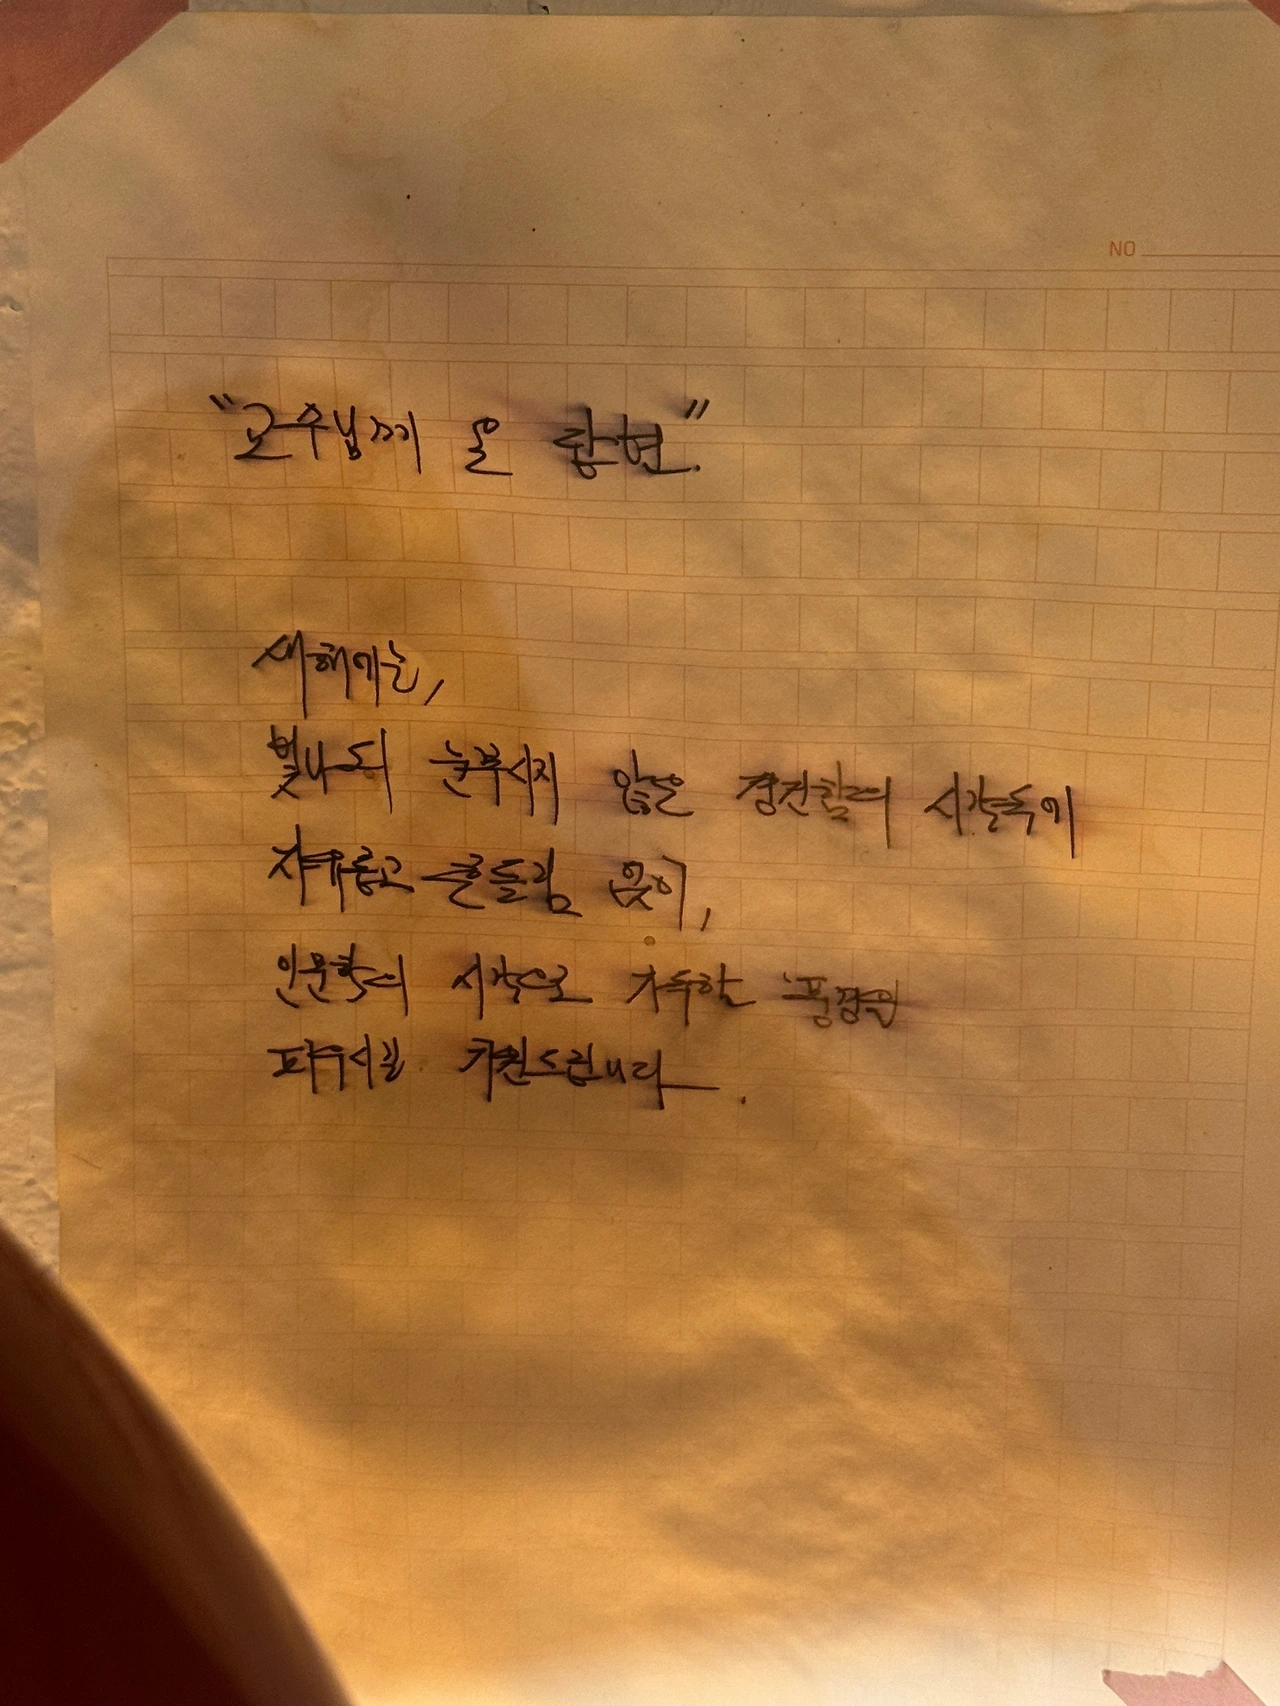 NO
"교수님께 올 람현".
새해에는,
빛나되 눈부시지 않은 경건함의 시간속에
자유롭고 흔들림 없이,
인문학의 시각으로 가득한 풍경을
피우시길 기원드립니다.